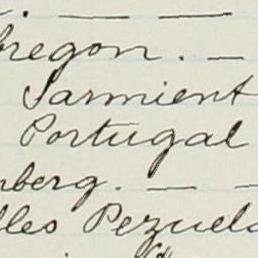 bregon. —
Sarmient
Portugal
nberg. — —
lles Pezuela